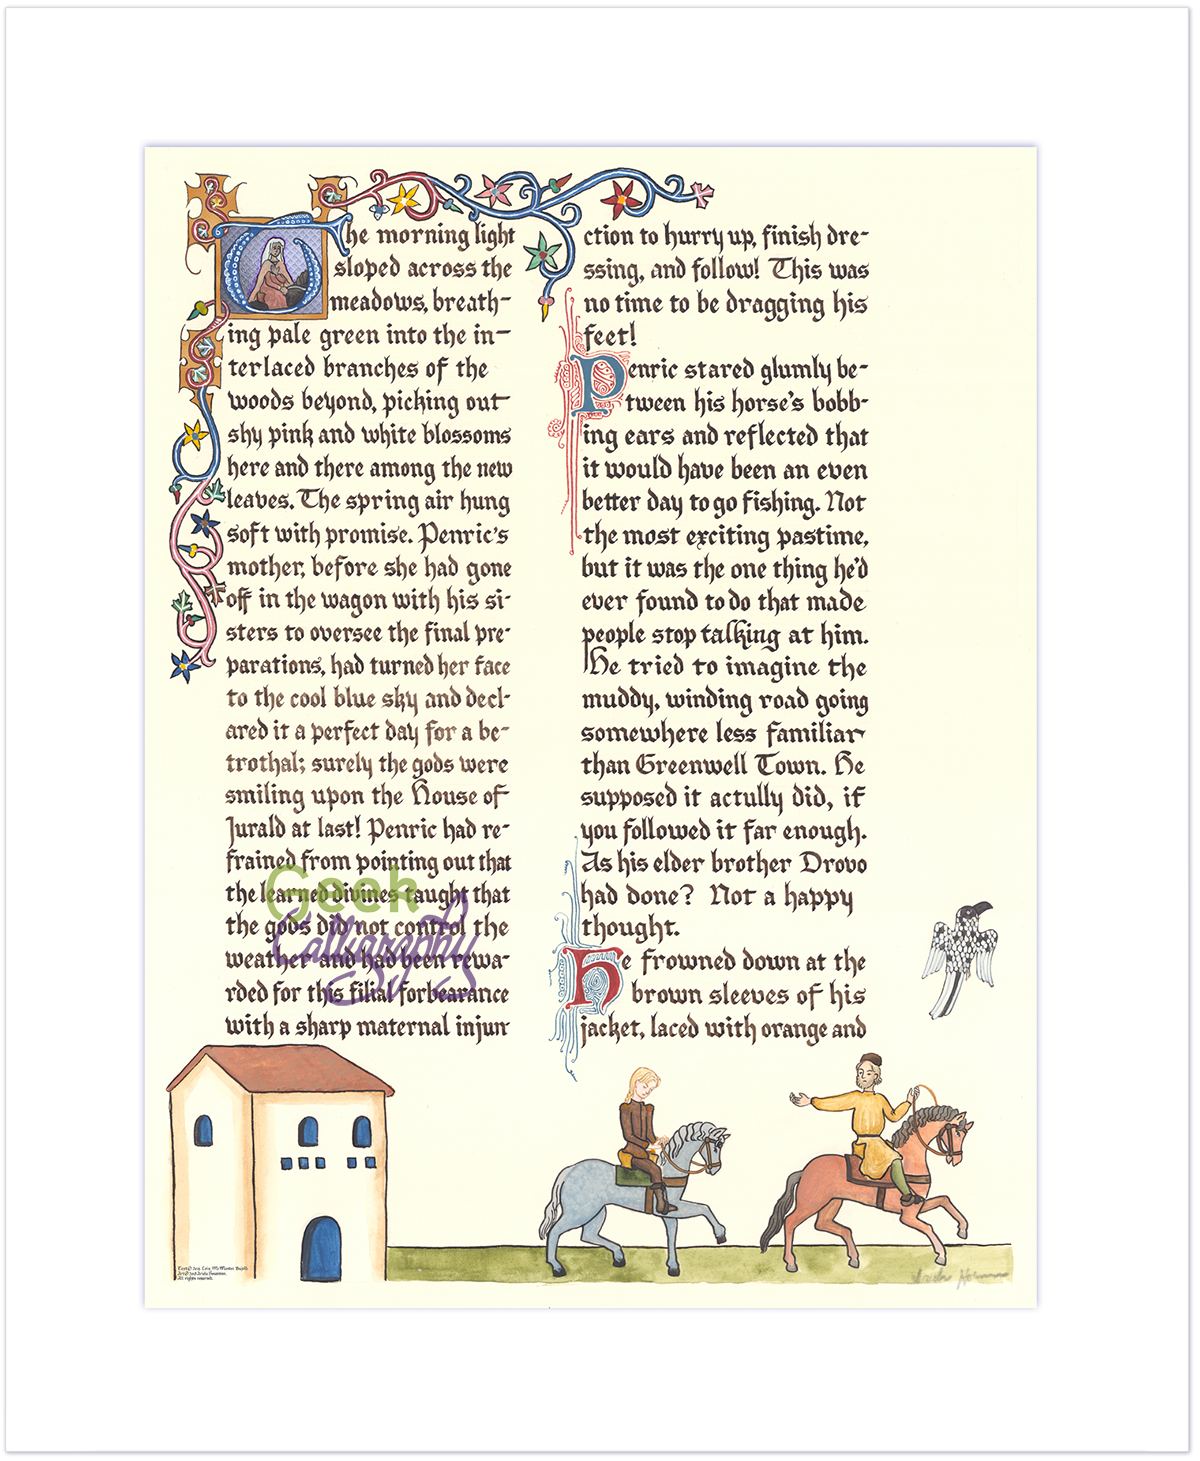 The morning light
sloped across the
meadows, breath-
ing pale green into the in-
terlaced branches of the
woods beyond, picking out
shy pink and white blossoms
here and there among the new
leaves. The spring air hung
soft with promise. Penric's
mother, before she had gone
off in the wagon with his si-
sters to oversee the final pre-
parations, had turned her face
to the cool blue sky and decl-
ared it a perfect day for a be-
trothal; surely the gods were
smiling upon the House of
Jurald at last! Penric had re-
frained from pointing out that
the learned divines taught that
the gods did not control the
weather and had been rewa-
rded for this filial forbearance
with a sharp maternal injun
ction to hurry up, finish dre-
ssing, and follow! This was
no time to be dragging his
feet!
Penric stared glumly be-
tween his horse's bobb-
ing ears and reflected that
it would have been an even
better day to go fishing. Not
the most exciting pastime,
but it was the one thing he'd
ever found to do that made
people stop talking at him.
He tried to imagine the
muddy, winding road going
somewhere less familiar
than Greenwell Town. He
supposed it actully did, if
you followed it far enough.
As his elder brother Drovo
had done? Not a happy
thought.
He frowned down at the
brown sleeves of his
jacket, laced with orange and
Geek
Calligraphy
All rights reserved.